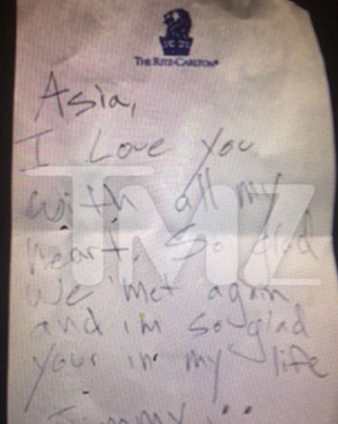 THE RITZ-CARLTON®
Asia,
I Love you
with all my
heart. So glad
we met again
and im so glad
your in my life
Jimmy
TMZ